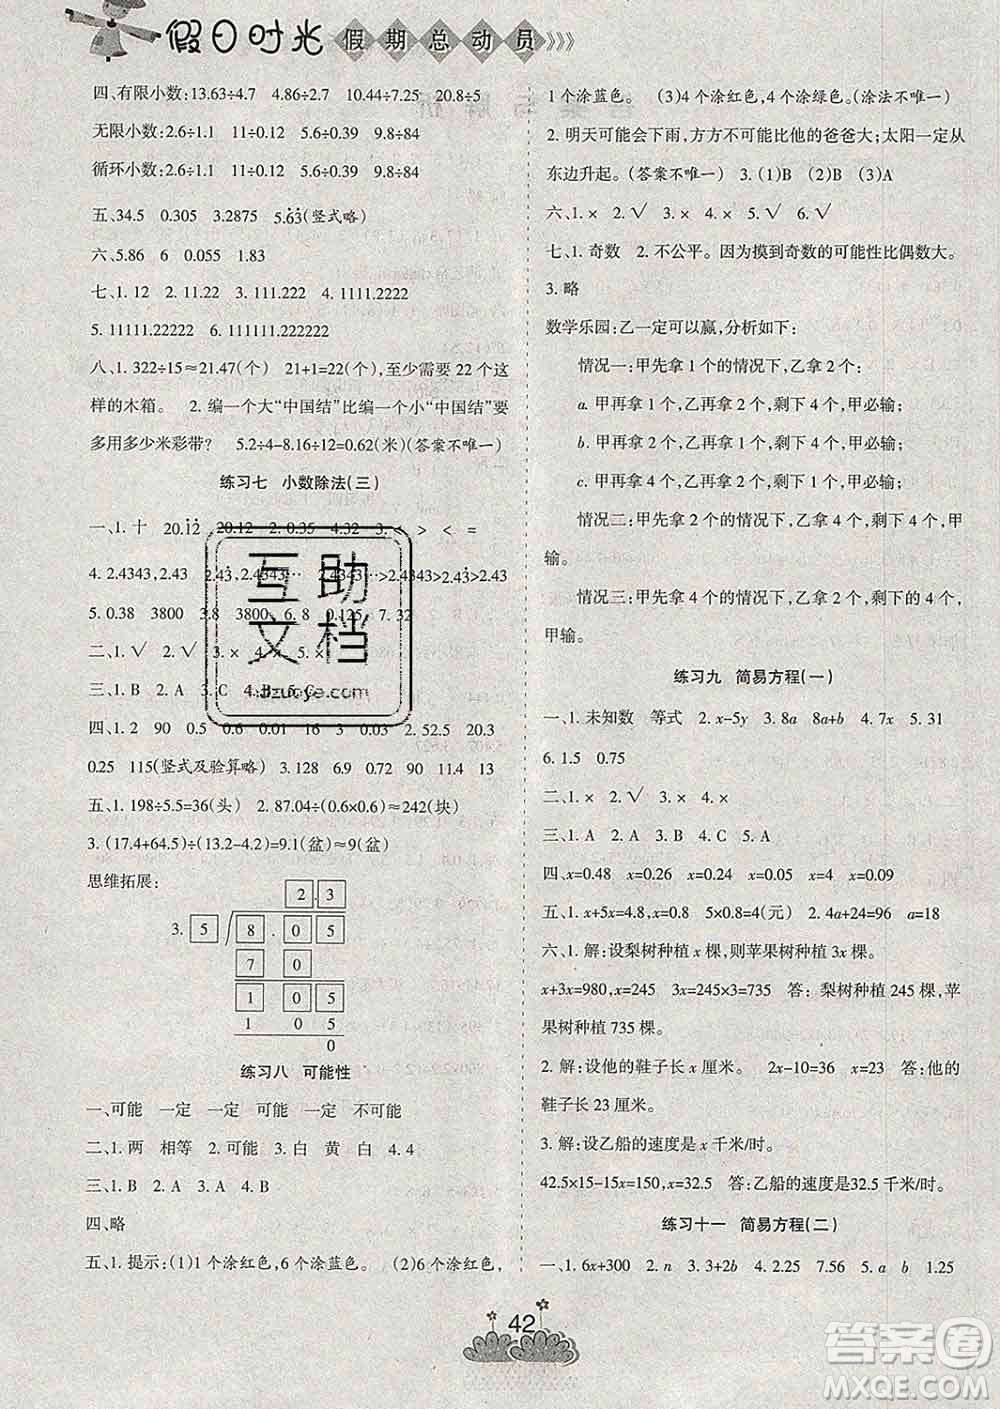 假日时光 假期总动员
四、有限小数:13.63÷4.7 4.86÷2.7 10.44÷7.25 20.8÷5
无限小数:2.6÷1.1 19÷9 0.23÷0.36 9.8÷84
循环小数:2.6÷1.1 19÷9 0.23÷0.36 9.8÷84
五、34.5 0.305 3.2875 5.6̇3̇(竖式略)
六、5.86 6 0.625 1.83
七、1. 12 2. 11.22 3. 111.222 4. 1111.2222
5. 11111.22222 6. 111111.222222
八、1. 322÷15≈21.47(个) 21+1=22(个),至少需要 22 个这
样的木箱。 2. 编一个大“中国结”比编一个小“中国结”要
多用多少米彩带? 5.2÷4-8.16÷12=0.62(米)(答案不唯一)
练习七 小数除法(三)
一、1. 十 20.1̇2̇ 20.12 2. 0.35 4.32 3. < > < =
4. 2.4343,2.43 2.4̇3̇,2.4343… 2.4343…>2.43>2.4343>2.43
5. 0.38 3800 3.8 6. 8 0.125 7. 32
二、1. √ 2. √ 3. × 4. × 5. ×
三、1. B 2. A 3. C 4. B 5. C
四、1. 2 90 0.5 0.6 0.9 0.03 2. 52.5 20.3
0.25 115(竖式及验算略) 3. 128 6.9 0.72 90 11.4 13
五、1. 198÷5.5=36(头) 2. 87.04÷(0.6×0.6)≈242(块)
3. (17.4+64.5)÷(13.2-4.2)=9.1(盆)≈9(盆)
思维拓展:
2.3
3. 5 8.05
7 0
1 05
1 05
0
练习八 可能性
一、可能 一定 一定 可能 一定 不可能
二、1. 两 相等 2. 可能 3. 白 黄 白 4. 4
三、1. B 2. A 3. A 4. B
四、略
五、1. 提示:(1)1 个涂红色,6 个涂蓝色。 (2)6 个涂红色,
1 个涂蓝色。 (3)4 个涂红色,4 个涂绿色。(涂法不唯一)
2. 明天可能会下雨,方方不可能比他的爸爸大;太阳一定从
东边升起。(答案不唯一) 3. (1)B (2)C (3)A
六、1. × 2. √ 3. × 4. × 5. √ 6. √
七、1. 奇数 2. 不公平。因为摸到奇数的可能性比偶数大。
3. 略
数学乐园:乙一定可以赢,分析如下:
情况一:甲先拿 1 个的情况下,乙拿 2 个,剩下 7 个;
a. 甲再拿 1 个,乙再拿 2 个,剩下 4 个,甲必输;
b. 甲再拿 2 个,乙再拿 1 个,剩下 4 个,甲必输;
情况二:甲先拿 2 个的情况下,乙拿 4 个,剩下 4 个,甲
输。
情况三:甲先拿 4 个的情况下,乙拿 2 个,剩下 4 个,
甲输。
练习九 简易方程(一)
一、1. 未知数 等式 2. x-5y 3. 8a 8a+b 4. 7x 5. 31
6. 1.5 0.75
二、1. × 2. √ 3. × 4. ×
三、1. A 2. C 3. B 4. C 5. A
四、x=0.48 x=0.26 x=0.24 x=4 x=0.09
五、1. x+5x=4.8,x=0.8 5×0.8=4(元) 2. 4a+24=96 a=18
六、1. 解:设梨树种植 x 棵,则苹果树种植 3x 棵。
x+3x=980,x=245 3x=3×245=735 答:梨树种植 245 棵,苹
果树种植 735 棵。
2. 解:设他的鞋子长 x 厘米。 2x-10=36 x=23 答:他的
鞋子长 23 厘米。
3. 解:设乙船的速度是 x 千米/时。
42.5×15-15x=150,x=32.5 答:乙船的速度是32.5 千米/时。
练习十一 简易方程(二)
一、1. 6x+300 2. n 3. 3+2b 4. 2.25 7.56 5. a b 1.25
42
互助文档
答案圈
MXQE.COM